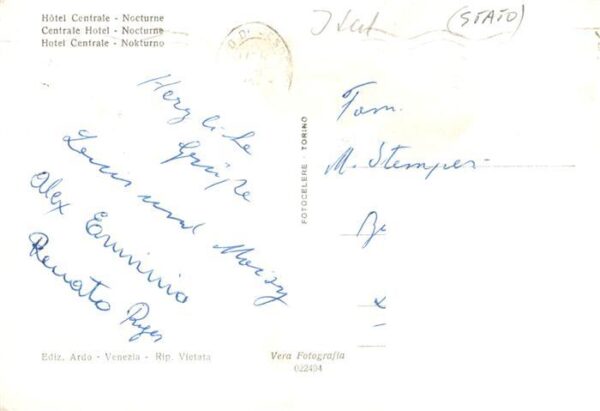 Hôtel Centrale - Nocturne
Centrale Hotel - Nocturne
Hotel Centrale - Nokturno
(STATO)
Herzliche
Grüße
Louis und
Alex Erminio
Renato
Fam.
M. Stemper
FOTOCELERE - TORINO
Ediz. Ardo - Venezia - Rip. Vietata
Vera Fotografia
022494